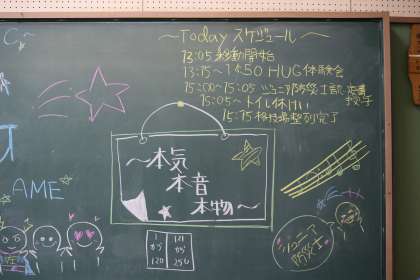 C~
AME
～Today スケジュール～
13:05 移動開始
13:15～14:50 HUG体験会
15:00～15:05 ジュニア防災士
15:05～トイレ休けい
15:15 整列完了
～本気
本音
本物～
1
から
120
121
から
250
ジュニア
防災士